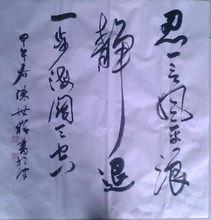 忍一言风平浪
静退
一步海阔天空
甲午春陈世